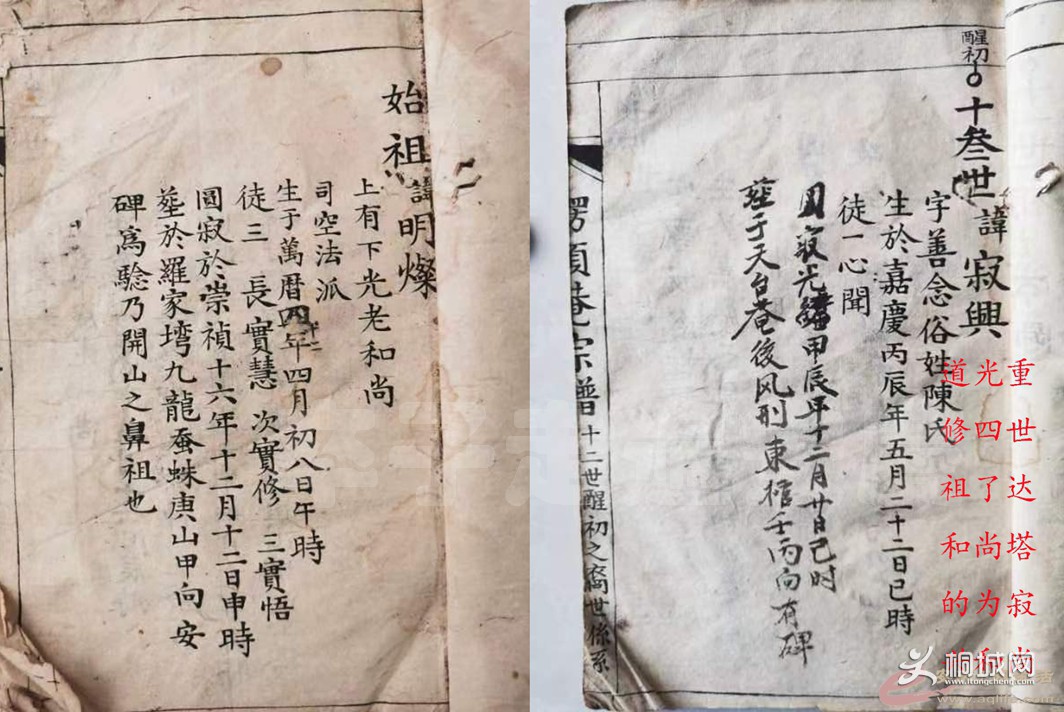 始祖諱明燦
上有下光老和尚
司空法派
生于萬曆四年四月初八日午時
徒三 長實慧 次實修 三實悟
圓寂於崇禎十六年十二月十二日申時
塟於羅家塆九龍蚕蛛庚山甲向安
碑為驗乃開山之鼻祖也
醒初
十叁世諱寂興
字善念俗姓陳氏
生於嘉慶丙辰年五月二十二日巳時
徒一心聞
寂光緒甲辰年十二月廿日己时
塟于天台菴後风形東棺壬丙向有碑
菴宗譜
十二世醒初之裔世係系
重世达塔寂
光四了尚为
道修祖和的
桐城网
www.itongcheng.com